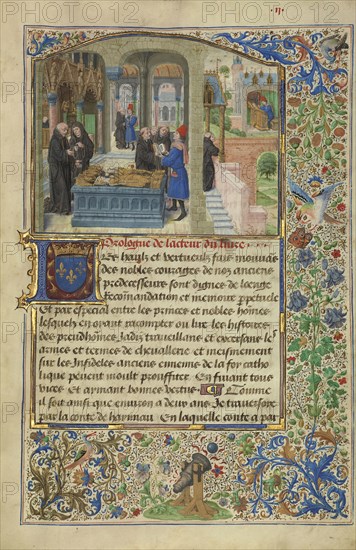 .ij.
Prologue de lacteur du liure
Les haulx et vertueulx fais mouuans
des nobles courages de nos anciens
predecesseurs sont dignes de loenge
Recommandation et memoire perpetuele
Et par especial entre les princes et nobles hommes
lesquelz en oyant racompter ou lire les histoires
des preudhommes Jadis traueillans et excersans les
armes et termes de cheuallerie et meismement
sur les Infideles anciens ennemis de la foy catho
lique peuent moult prouffiter En fuiant tous
vices Et aymant bonnes vertus Comme
il soit ainsi que enuiron a deux ans Je trauersaisse
par la conte de haynnau En laquelle conte a par